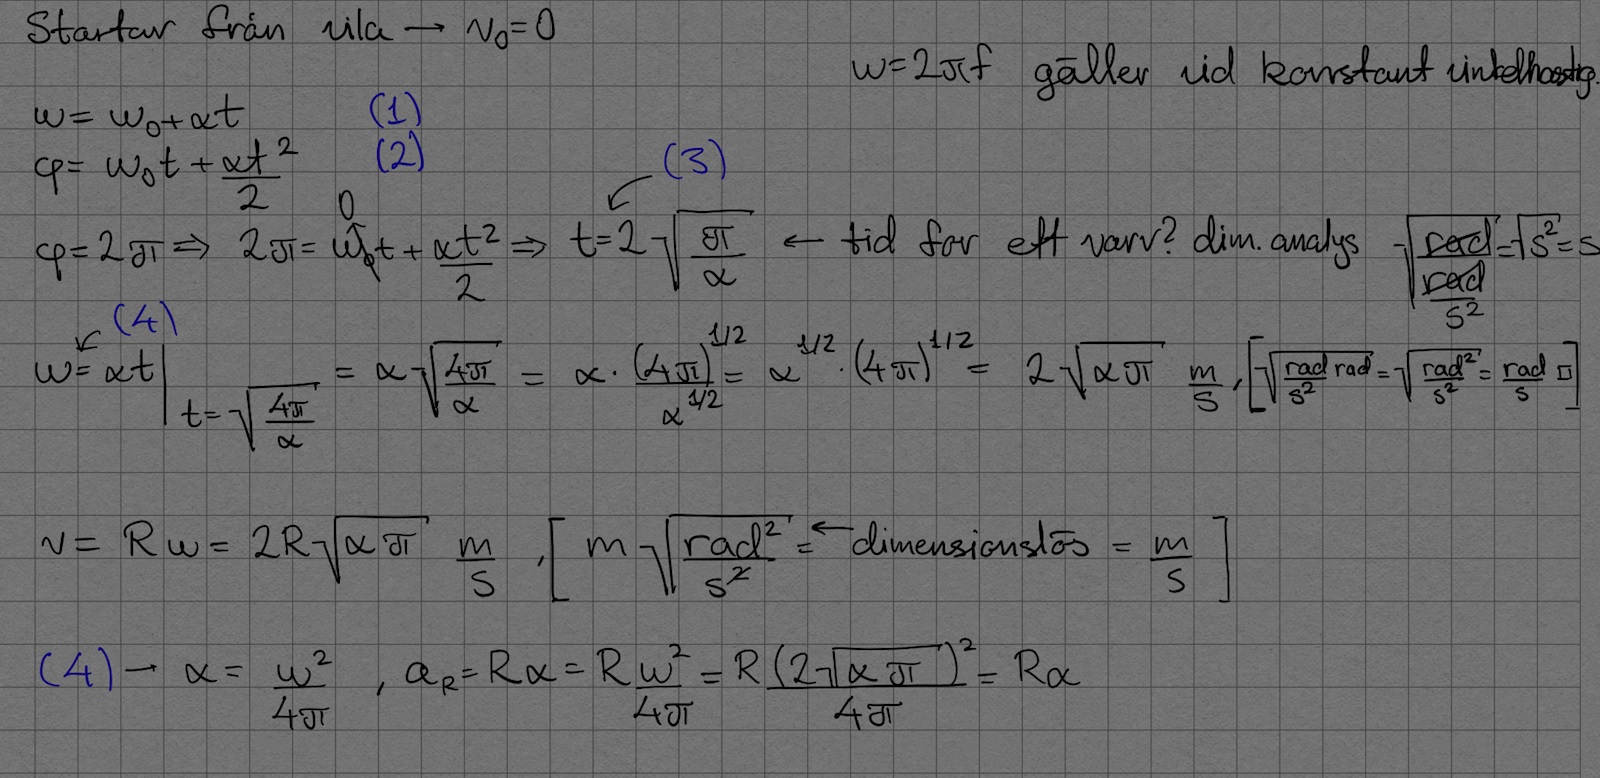 Startar från vila → v₀=0
w=2πf gäller vid konstant vinkelhastig.
w= w₀+αt (1)
φ= w₀t + αt²/2 (2)
(3)
φ=2π ⇒ 2π= w₀t + αt²/2 ⇒ t=2√(π/α) ← tid for ett varv? dim. analys √(rad/(rad/s²))=√s²=s
0
(4)
w= αt | t=√(4π/α) = α√(4π/α) = α·(4π)^1/2/α^1/2 = α^1/2·(4π)^1/2= 2√(απ) m/s, [√(rad/s² rad)=√(rad²/s²)= rad/s □]
v= Rw= 2R√(απ) m/s, [m√(rad²/s²)= ← dimensionslös = m/s]
(4) → α= w²/4π, a_R=Rα=R w²/4π= R(2√(απ))²/4π= Rα